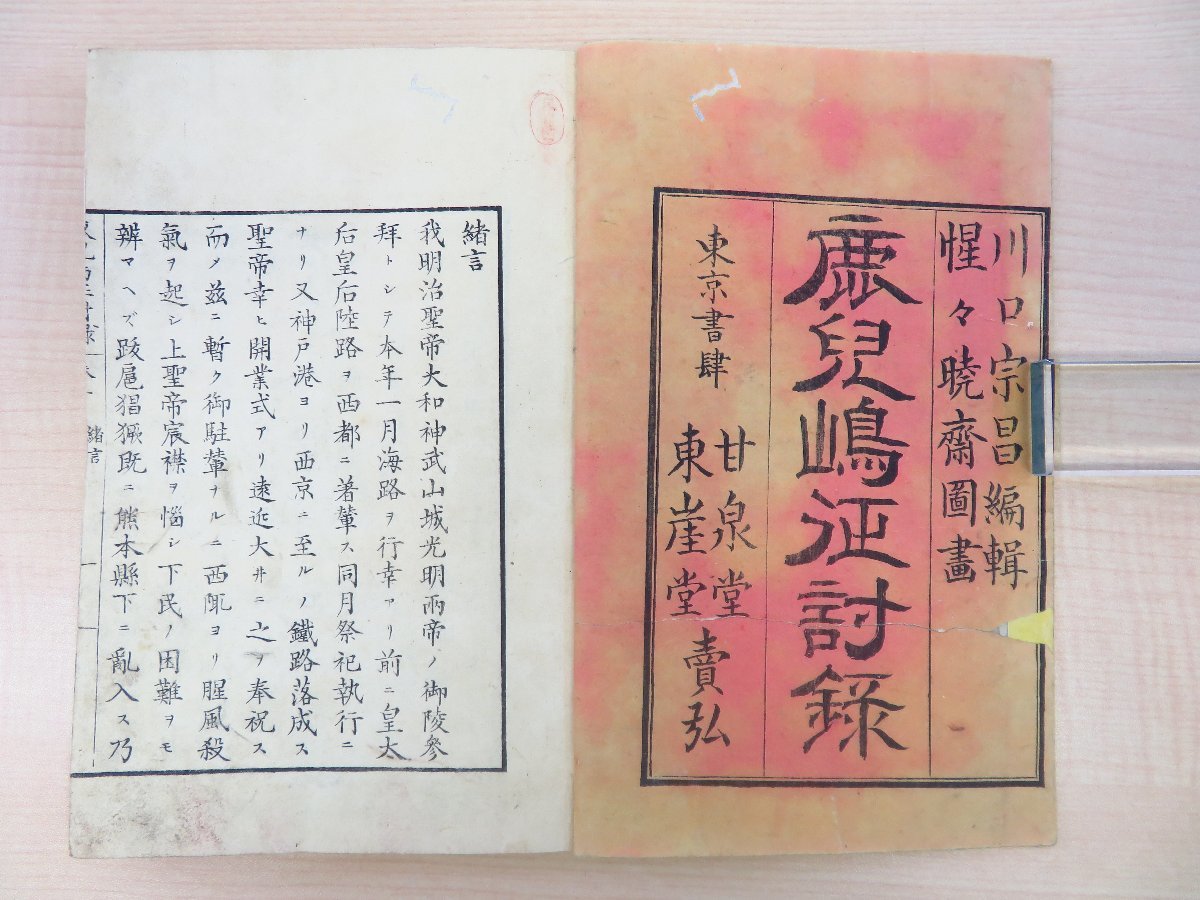 川口宗昌編輯
惺々暁齋圖畫
鹿兒嶋征討録
東京書肆
甘泉堂
東崖堂
賣弘
緒言
我明治聖帝大和神武山城光明両帝ノ御陵參
拜トシテ本年一月海路ヲ行幸アリ前ニ皇太
后皇后陸路ヲ西都ニ著輦ス同月祭祀執行ニ
ナリ又神戸港ヨリ西京ニ至ルノ鐵路落成ス
聖帝幸ヒ開業式アリ遠近大井ニ之ヲ奉祝ス
而メ茲ニ暫ク御駐輦ナルニ西陬ヨリ腥風殺
氣ヲ起シ上聖帝宸襟ヲ惱シ下民ノ困難ヲモ
辨マヘズ跋扈猖獗既ニ熊本縣下ニ亂入ス乃
緒言
一